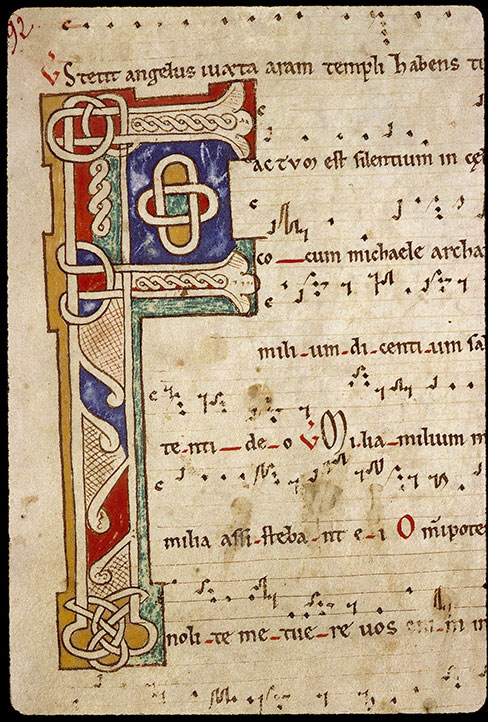 92
V Stetit angelus iuxta aram templi habens tu
FACTVM est silentium in cę
co cum michaele archa
mili-um-di-centi-um sa
te-nti-de-o V Milia-milium m
milia assi-steba-nt e-i Omīpote
noli-te me-tue-re vos in